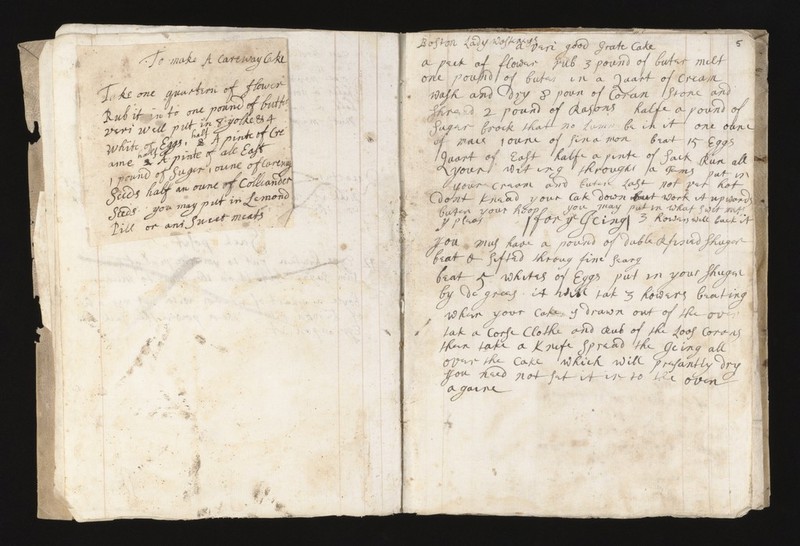 To make A Careway Cake
Take one quartron of flower
Rub it in to one pound of butter
veri well put in 8 yolke & 4
white of Eggs, half A pinte of Cre
ame half A pinte of ale East
1 pound of Suger 1 oune of Careway
Seeds half an oune of Colliander
Seeds you may put in Lemond
Pill or ani Sweet meats
5
Boston Lady
a veri good grate Cake
a peck of flower Rub 3 pound of buter melt
one pound of buter in a quart of Cream
wash and Dry 8 poun of Coran Stone and
Shread 2 pound of Rasons halfe a pound of
Suger brock that no Lumm be in it one oune
of mace 1 oune of sinamon beat 15 Eggs
1 quart of East halfe a pinte of Sack Run all
your wit ing through a put in
your Cream and buter Last not per hot
Dont knead your Cak down but work it upwards
buter your hoop you may put in what Swet
y pleas for ye Iceing 3 howers will back it
you mus have a pound of duble Refined Shuger
beat & Sifted throug fine Searg
beat 5 whites of Eggs put in your Shuger
by de grees it will tak 3 howers beating
when your Cake is drawn out of the ov
tak a Corse Clothe and Rub of the Loos Corans
then take a knife Spread the Iceing all
over the Cake which will presantly dry
you need not Set it in to the oven
againe